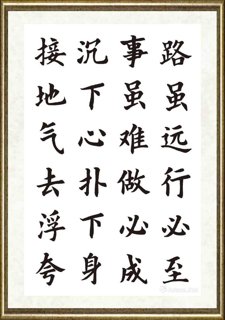 路虽远行必至
事虽难做必成
沉下心扑下身
接地气去浮夸